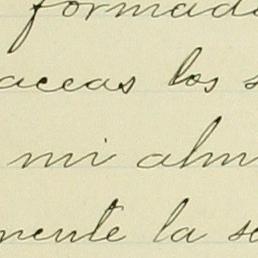 formad
aceas los s
mi alm
mente la se